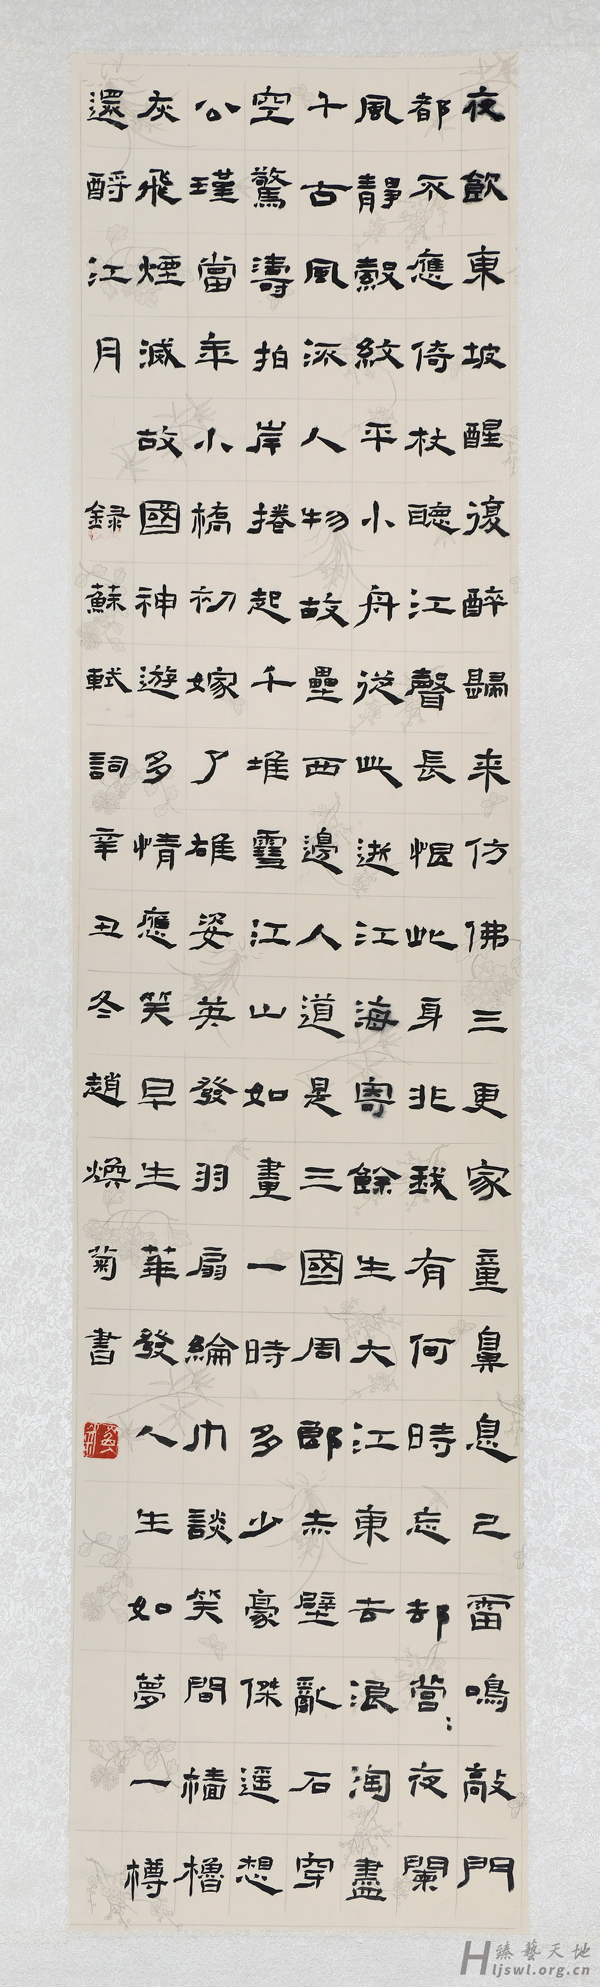 夜飲東坡醒復醉歸来仿佛三更家童鼻息已雷鳴敲門
都不應倚杖聽江聲長恨此身非我有何時忘却營：夜闌
風靜縠紋平小舟從此逝江海寄餘生大江東去浪淘盡
千古風流人物故壘西邊人道是三國周郎赤壁亂石穿
空驚濤拍岸捲起千堆雪江山如畫一時多少豪傑遥想
公瑾當年小橋初嫁了雄姿英發羽扇綸巾談笑間檣櫓
灰飛煙滅故國神遊多情應笑早生華發人生如夢一樽
還酹江月 録蘇軾詞辛丑冬趙煥菊書
臻藝天地
Hljswl.org.cn